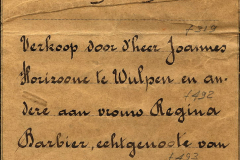 7319
Verkoop door d'heer Joannes
Horizoone te Wulpen en an-
7492
dere aan vrouw Regina
Barbier, echtgenoote van
7493